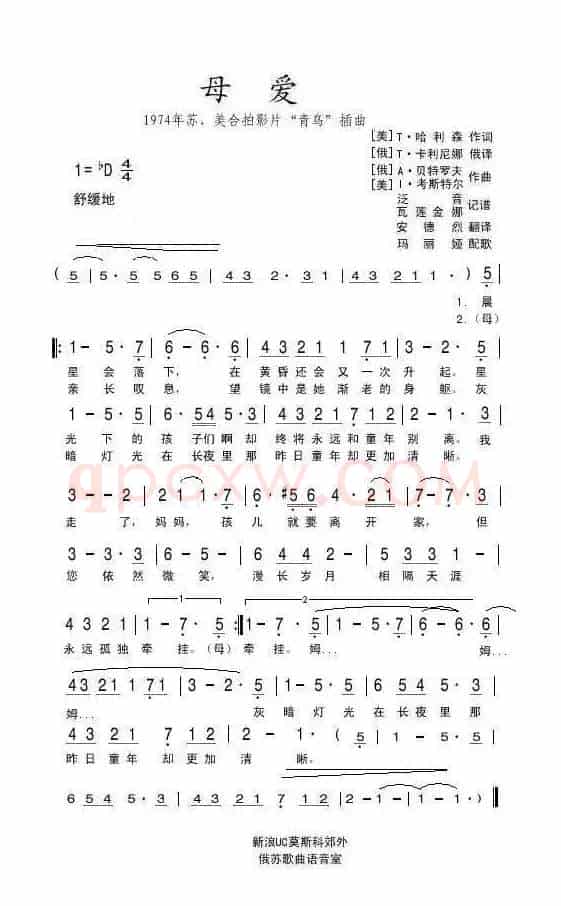 母 爱
1974年苏、美合拍影片“青鸟”插曲
[美]T·哈利森 作词
[俄]T·卡利尼娜 俄译
[俄]A·贝特罗夫
[美]I·考斯特尔 作曲
泛音
瓦莲金娜 记谱
安德烈 翻译
玛丽娅 配歌
1=♭D 4/4
舒缓地
( 5 | 5· 5 5 6 5 | 4 3 2 3 | 4 3 2 1 1 · ) 5
1. 晨
2.(母)
‖: 1 - 5· 7 | 6 - 6· 6 | 4 3 2 1 1 7 1 | 3 - - 5
星会落下, 在黄昏还会又一次升起。星
亲长叹息, 望镜中是她渐老的身躯。灰
1 - 5· 1 | 6· 6 5 4 5 3 | 4 3 2 1 7 1 | 2 - 1· 3
光下的孩子们啊却终将永远和童年别离。我
暗灯光在长夜里那昨日童年却更加清晰。
qpcxw.com
3 - - 2 | 2 1 1 - 7 | 6· #5 6 4· 2 1 | 7 - - 6
走了,妈妈,孩儿就要离开家,但
3 - 3· 3 | 5 - 5· 1 | 6 4 4 - | 2 2 2 1
您依然微笑,漫长岁月相隔天涯
1
2
4 3 2 1 | 1 - 7· 5 :‖ 1 - 7· 5 | 1 - 5· 7 | 6 - 6· 6
永远孤独牵挂。(母)牵挂。姆... 姆...
4 3 2 1 1 7 1 | 3 - - 5 | 1 - 5· 1 | 6 5 4 5 3
姆... 灰暗灯光在长夜里那
4 3 2 1 7 1 | 2 - 1· ( 5 | 5 - 5· 1
昨日童年却更加清晰。
6 5 4 5 3· | 4 3 2 1 7 1 | 2 - 1 - | 1 - 1 - ) ‖
新浪UC莫斯科郊外
俄苏歌曲语音室